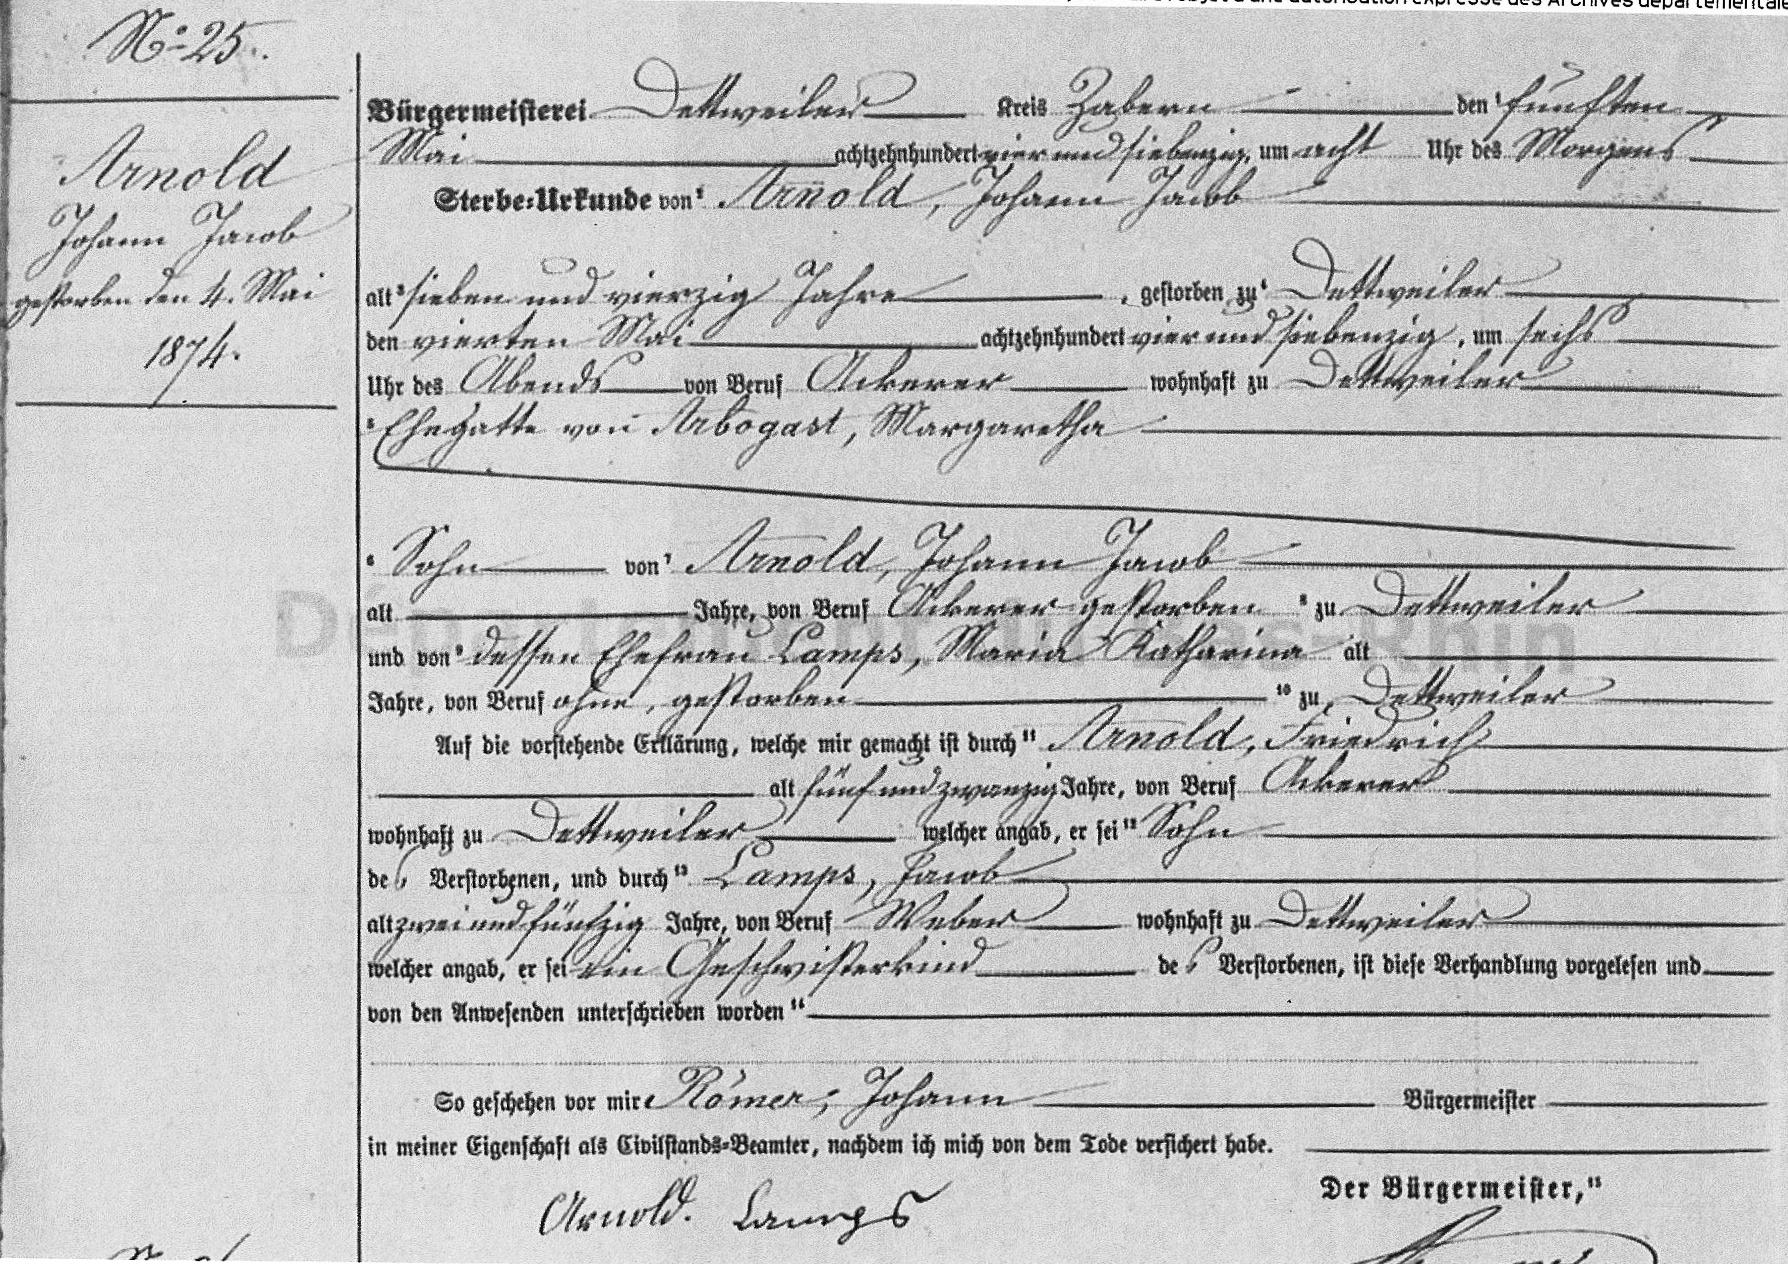 No 25.
Arnold
Johann Jacob
gestorben den 4. Mai
1874.
Bürgermeisterei Dettweiler Kreis Zabern den ¹ fünften
Mai achtzehnhundert vier und siebenzig, um acht Uhr des Morgens
Sterbe-Urkunde von ² Arnold, Johann Jacob
alt ³ sieben und vierzig Jahre, gestorben zu ⁴ Dettweiler
den vierten Mai achtzehnhundert vier und siebenzig, um sechs
Uhr des Abends von Beruf Ackerer wohnhaft zu Dettweiler
⁵ Ehegatte von Arbogast, Margaretha
⁶ Sohn von ⁷ Arnold, Johann Jacob
alt Jahre, von Beruf Ackerer gestorben ⁸ zu Dettweiler
und von ⁹ dessen Ehefrau Lamps, Maria Katharina alt
Jahre, von Beruf ohne, gestorben ¹⁰ zu Dettweiler
Auf die vorstehende Erklärung, welche mir gemacht ist durch ¹¹ Arnold, Friedrich
alt fünf und zwanzig Jahre, von Beruf Ackerer
wohnhaft zu Dettweiler welcher angab, er sei ¹² Sohn
des Verstorbenen, und durch ¹³ Lamps, Jacob
alt zwei und fünfzig Jahre, von Beruf Weber wohnhaft zu Dettweiler
welcher angab, er sei ein Geschwisterkind des Verstorbenen, ist diese Verhandlung vorgelesen und
von den Anwesenden unterschrieben worden ¹⁴
So geschehen vor mir Römer, Johann Bürgermeister
in meiner Eigenschaft als Civilstands-Beamter, nachdem ich mich von dem Tode versichert habe.
Der Bürgermeister, ¹⁵
Arnold. Lamps